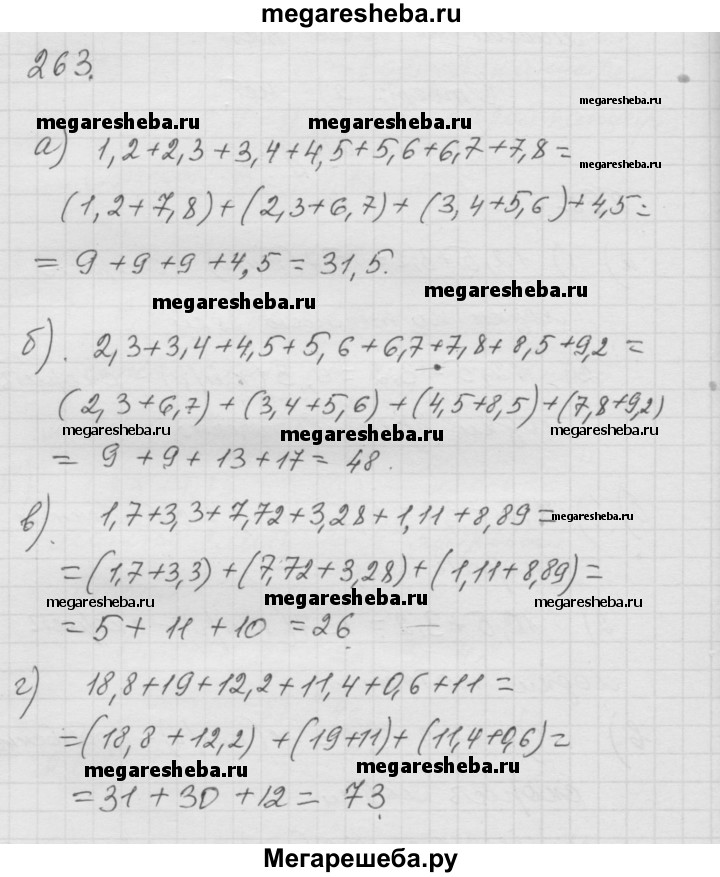 megaresheba.ru
263.
megaresheba.ru megaresheba.ru megaresheba.ru
а) 1,2+2,3+3,4+4,5+5,6+6,7+7,8=
megaresheba.ru
(1,2+7,8)+(2,3+6,7)+(3,4+5,6)+4,5=
= 9+9+9+4,5=31,5.
megaresheba.ru megaresheba.ru
б). 2,3+3,4+4,5+5,6+6,7+7,8+8,5+9,2=
(2,3+6,7)+(3,4+5,6)+(4,5+8,5)+(7,8+9,2)
megaresheba.ru megaresheba.ru megaresheba.ru
= 9+9+13+17=48.
в). 1,7+3,3+7,72+3,28+1,11+8,89=
megaresheba.ru
=(1,7+3,3)+(7,72+3,28)+(1,11+8,89)=
megaresheba.ru megaresheba.ru megaresheba.ru
=5+11+10=26.
г) 18,8+19+12,2+11,4+0,6+11=
=(18,8+12,2)+(19+11)+(11,4+0,6)=
megaresheba.ru megaresheba.ru
=31+30+12=73.
Мегарешеба.ру